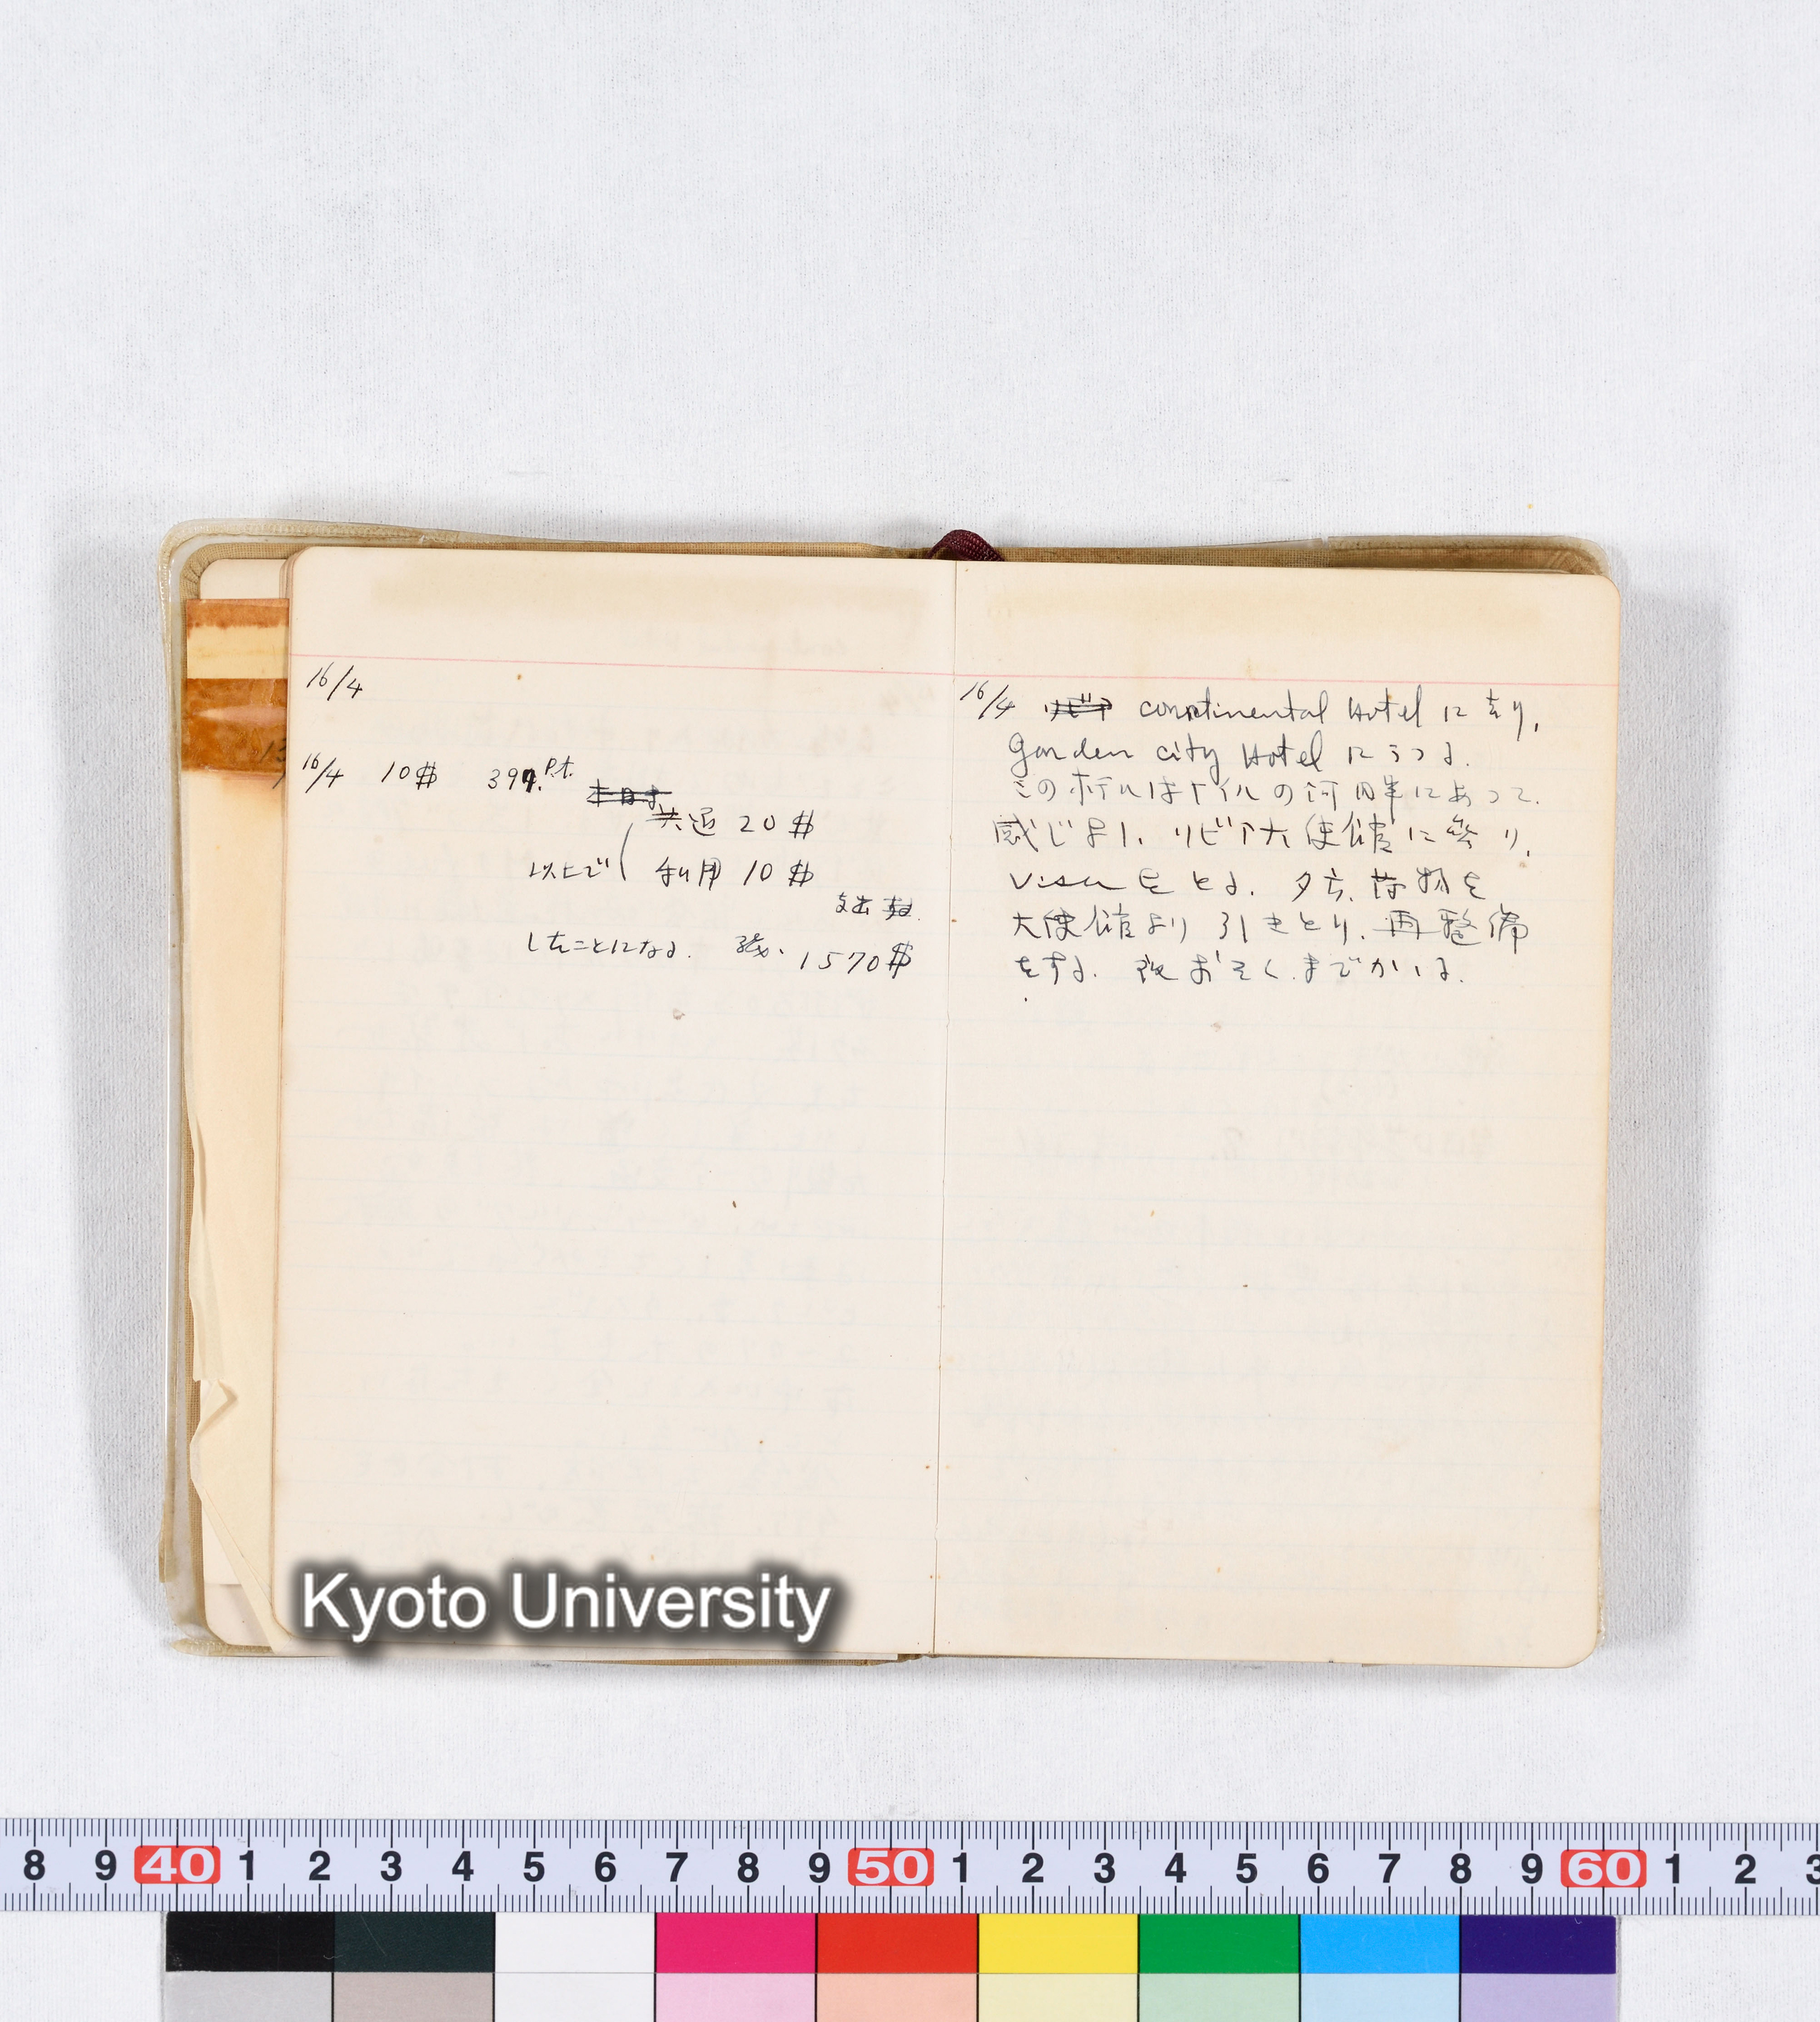 16/4
16/4 10$ 397. P.t.
本日は
共通 20$
以上で 私用 10$
支出
したことになる. 残、1570$
16/4 リビア continental Hotel に去り,
Garden city Hotel にうつる.
このホテルはナイルの河岸にあって.
感じよし. リビア大使館に参り,
Visa をとる. 夕方, 荷物を
大使館より引きとり, 再整備
をする. 夜おそくまでかゝる.
Kyoto University
8 9 40 1 2 3 4 5 6 7 8 9 50 1 2 3 4 5 6 7 8 9 60 1 2 3